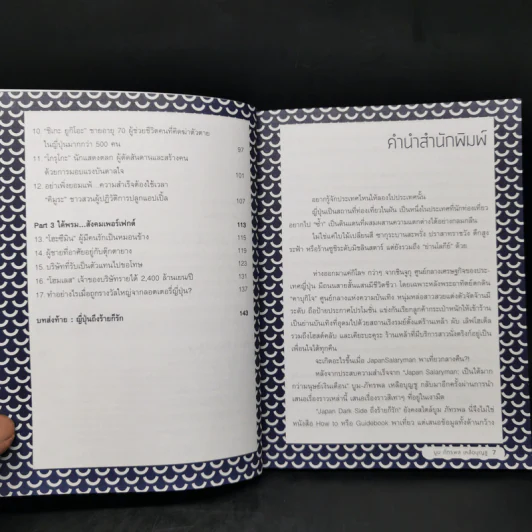 10 "ชิเกะ ยูกิโอะ" ชายอายุ 70 ผู้ช่วยชีวิตคนที่คิดฆ่าตัวตาย
ในญี่ปุ่นมากกว่า 500 คน 97
11 "โกรุโกะ" นักแสดงตลก ผู้ตัดสันดานและสร้างคน
ด้วยการมอบแรงบันดาลใจ 101
12 อย่าเพิ่งยอมแพ้...ความสำเร็จต้องใช้เวลา
"คิมูระ" ชาวสวนผู้ปฏิวัติการปลูกแอปเปิ้ล 107
Part 3 ใต้พรม...สังคมเพอร์เฟกต์ 113
13. "โฮะชิมิน" ผู้มีคนรักเป็นหมอนข้าง 115
14 ผู้ชายที่อาศัยอยู่กับตุ๊กตายาง 119
15. บริษัทที่รับเป็นตัวแทนไปขอโทษ 123
16 "โฮมเลส" เจ้าของบริษัทรายได้ 2,400 ล้านเยน/ปี 131
17 ทำอย่างไรเมื่อถูกรางวัลใหญ่จากลอตเตอรี่ญี่ปุ่น? 135
บทส่งท้าย : ญี่ปุ่นถึงร้ายก็รัก 143
คำนำสำนักพิมพ์
อยากรู้จักประเทศไหนให้ลองไปประเทศนั้น
ญี่ปุ่นเป็นสถานที่ท่องเที่ยวในฝัน เป็นหนึ่งในประเทศที่นักท่องเที่ยว
อยากไป "ซ้ำ" เป็นดินแดนที่ผสมผสานความแตกต่างได้อย่างกลมกลืน
ไม่ใช่แค่ใบไม้เปลี่ยนสี ซากุระบานสะพรั่ง ปราสาทราชวัง ตึกสูง
ระฟ้า หรือร้านซูชิระดับมิชลินสตาร์ แต่ยังรวมถึง "ย่านโลกีย์" ด้วย
ห่างออกมาแค่กิโลฯ กว่าๆ จากชินจูกุ ศูนย์กลางเศรษฐกิจของประ-
เทศญี่ปุ่น มีถนนสายสั้นแสนมีชีวิตชีวา โดยเฉพาะหลังพระอาทิตย์ตกดิน
"คาบูกิโจ" ศูนย์กลางแห่งความบันเทิง หนุ่มหล่อสาวสวยแต่งตัวจัดจ้านมี
ระดับ ถือป้ายประกาศโปรโมชั่น แข่งกันเรียกลูกค้ากระเป๋าหนักให้เข้าร้าน
เป็นย่านบันเทิงที่อุดมไปด้วยสถานเริงรมย์ตั้งแต่ร้านเหล้า ผับ เลิฟโฮเต็ล
รวมถึงโฮสต์คลับ และเคียะบะคุระ ร้านเหล้าที่มีบริการสาวนั่งดริงก์อยู่เป็น
เพื่อนไม่ได้ทุกคืน
จะเกิดอะไรขึ้นเมื่อ JapanSalaryman พาเที่ยวกลางคืน?!
หลังจากประสบความสำเร็จจาก "Japan Salaryman: เป็นได้มาก
กว่ามนุษย์เงินเดือน" บูม-ภัทรพล เหลือบุญชู กลับมาอีกครั้งผ่านการนำ
เสนอเรื่องราวเหล่านี้ เสนอเรื่องราวสีเทาๆ ที่อยู่ในเงามืด
"Japan Dark Side ถึงร้ายก็รัก" ยังคงสไตล์บูม ภัทรพล นี่จึงไม่ใช่
หนังสือ How to หรือ Guidebook พาเที่ยว แต่เสนอข้อมูลทั้งด้านกว้าง
บูม ภัทรพล เหลือบุญชู 7